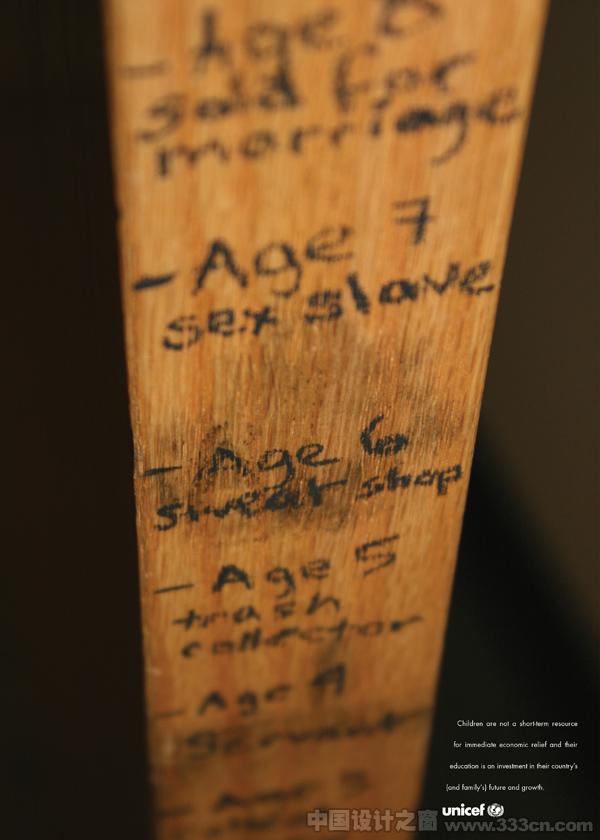 - Age 8
sold for
marriage
- Age 7
sex slave
- Age 6
sweat shop
- Age 5
trash
collector
- Age 4
Servant
- Age 3
Children are not a short-term resource
for immediate economic relief and their
education is an investment in their country's
(and family's) future and growth.
unicef
中国设计之窗 www.333cn.com